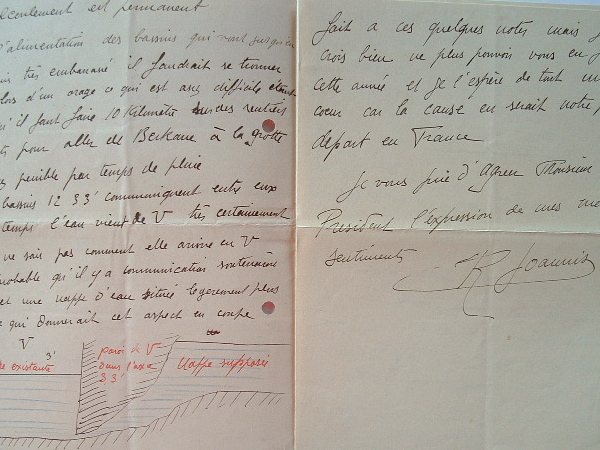 écoulement est permanent
d'alimentation des bassins qui vont jusqu'en
très embarrassé il faudrait se trouver
lors d'un orage ce qui est assez difficile étant
qu'il faut faire 10 Kilomètre sur des sentiers
pour aller de Berkane à la grotte
pénible par temps de pluie
bassins 1 2 3 3' communiquent entre eux
temps l'eau vient de V très certainement
ne sais pas comment elle arrive en V
probable qu'il y a communication souterraine
et une nappe d'eau située legerement plus
ce qui donnerait cet aspect en coupe
V 3'
existante
paroi de V
dans l'axe
3 3'
Nappe supposée
fait a ces quelques notes mais je
crois bien ne plus pouvoir vous en
cette année et je l'espère de tout mon
coeur car la cause en serait notre
depart en France
Je vous prie d'Agreer Monsieur
President l'expression de mes
sentiments
R Joannis